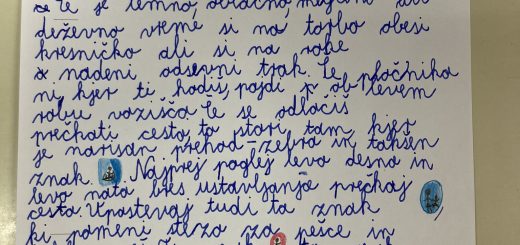 če je temno, oblačno, megleno ali
deževno vreme si na torbo obesi
kresničko ali si na robe
nadeni odsevni trak. Če pločnika
ni, kjer ti hodiš, pojdi p ob levem
robu vozišča. Če se odločiš
prečkati cesto, to stori tam, kjer
je narisan prehod-zebra in takšen
znak. Najprej poglej levo desno in
levo nato bres ustavljanja prečkaj
cesto. Upostevaj tudi ta znak
ki pomeni stezo za pešce in